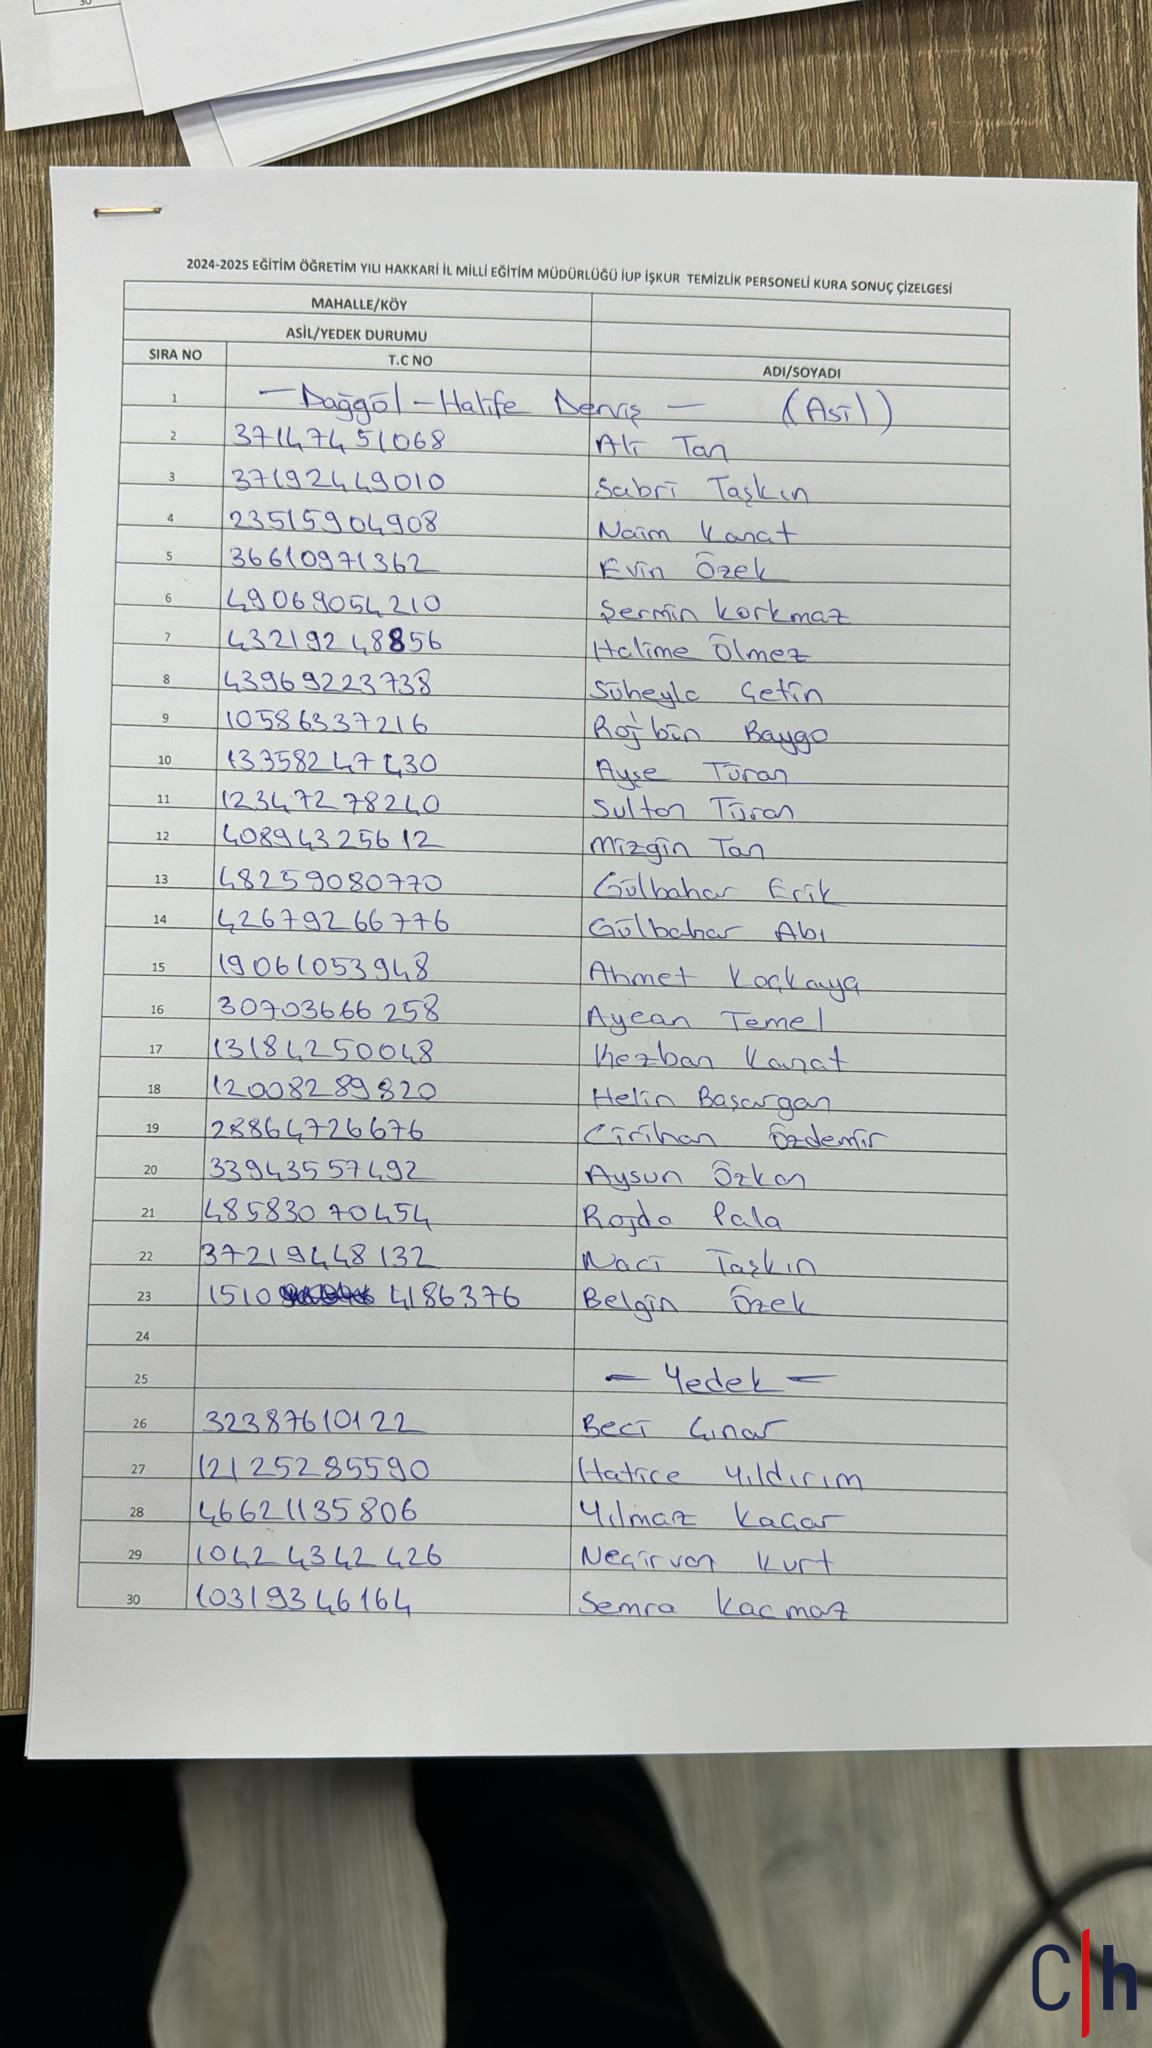 30
2024-2025 EĞİTİM ÖĞRETİM YILI HAKKARİ İL MİLLİ EĞİTİM MÜDÜRLÜĞÜ İUP İŞKUR TEMİZLİK PERSONELİ KURA SONUÇ ÇİZELGESİ
MAHALLE/KÖY
ASİL/YEDEK DURUMU
SIRA NO T.C NO ADI/SOYADI
1 — Dağgöl - Halife Derviş — (Asil)
2 37147451068 Ali Tan
3 37192449010 Sabri Taşkın
4 23515904908 Naim Kanat
5 36610971362 Evin Özek
6 49069054210 Şermin Korkmaz
7 43219248856 Halime Ölmez
8 43969223738 Süheyla Çetin
9 10586337216 Rojbin Baygo
10 13358247430 Ayşe Turan
11 12347278240 Sultan Turan
12 40894325612 Mizgin Tan
13 48259080770 Gülbahar Erik
14 42679266776 Gülbahar Abı
15 19061053948 Ahmet Koçkaya
16 30703666258 Aycan Temel
17 13184250048 Kezban Kanat
18 12008289820 Helin Başargan
19 28864726676 Cirihan Özdemir
20 33943557492 Aysun Özkan
21 48583070454 Rojda Pala
22 37219448132 Naci Taşkın
23 1510 4186376 Belgin Özek
24
25 — Yedek —
26 32387610122 Beci Çınar
27 12125285590 Hatice Yıldırım
28 46621135806 Yılmaz Kaçar
29 10424342426 Neçirvan Kurt
30 10319346164 Semra Kaçmaz
C|h